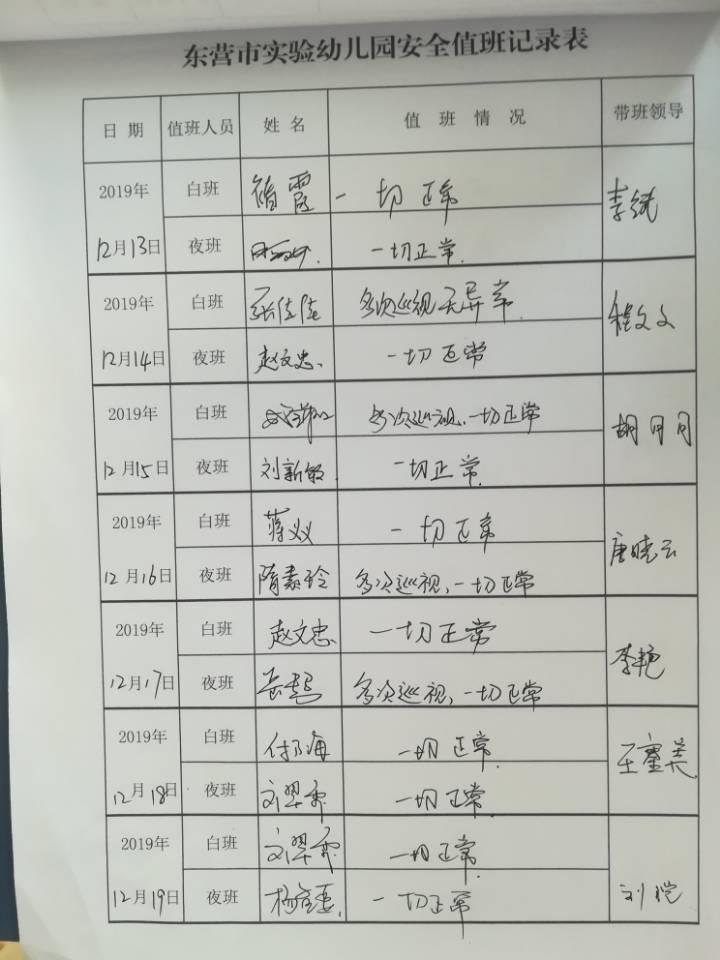 东营市实验幼儿园安全值班记录表
日期 值班人员 姓名 值班情况 带班领导
2019年 白班 霞 一切正常
12月13日 夜班 一切正常
2019年 白班 张佳佳 多次巡视无异常 程文文
12月14日 夜班 赵文忠 一切正常
2019年 白班 多次巡视、一切正常 胡月月
12月15日 夜班 刘新敏 一切正常
2019年 白班 蒋义 一切正常 唐晓云
12月16日 夜班 隋素玲 多次巡视、一切正常
2019年 白班 赵文忠 一切正常 李艳
12月17日 夜班 多次巡视、一切正常
2019年 白班 付乃海 一切正常 王童美
12月18日 夜班 刘翠霞 一切正常
2019年 白班 刘翠霞 一切正常 刘
12月19日 夜班 杨 一切正常